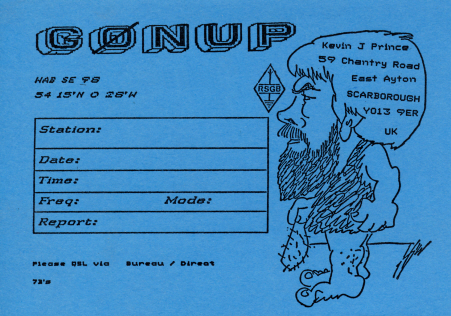 GØNUP
WAB SE 98
54 15'N 0 28'W
RSGB
Kevin J Prince
59 Chantry Road
East Ayton
SCARBOROUGH
YO13 9ER
UK
Station:
Date:
Time:
Freq: Mode:
Report:
Please QSL via Bureau / Direct
73's